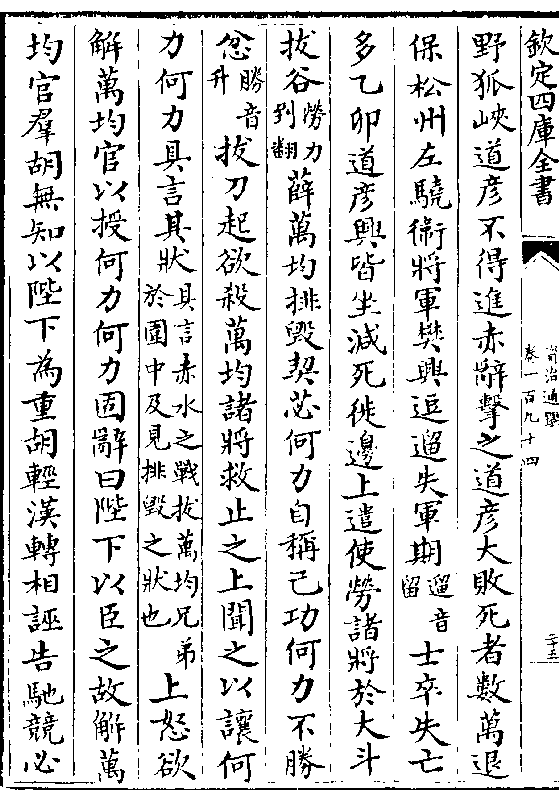 欽定四庫全書
資治通鑑
卷一百九十四
三十五
野狐峽道彦不得進赤辭擊之道彦大敗死者數萬退
保松州左驍衛將軍樊興逗遛失軍期遛音留士卒失亡
多乙卯道彦興皆坐減死徙邊上遣使勞諸將於大斗
拔谷勞力到翻薛萬均排毁契苾何力自稱己功何力不勝
忿勝音升拔刀起欲殺萬均諸將救止之上聞之以讓何
力何力具言其狀具言赤水之戰拔萬均兄弟於圍中及見排毁之狀也上怒欲
解萬均官以授何力何力固辭曰陛下以臣之故解萬
均官羣胡無知以陛下為重胡輕漢轉相誣告馳競必